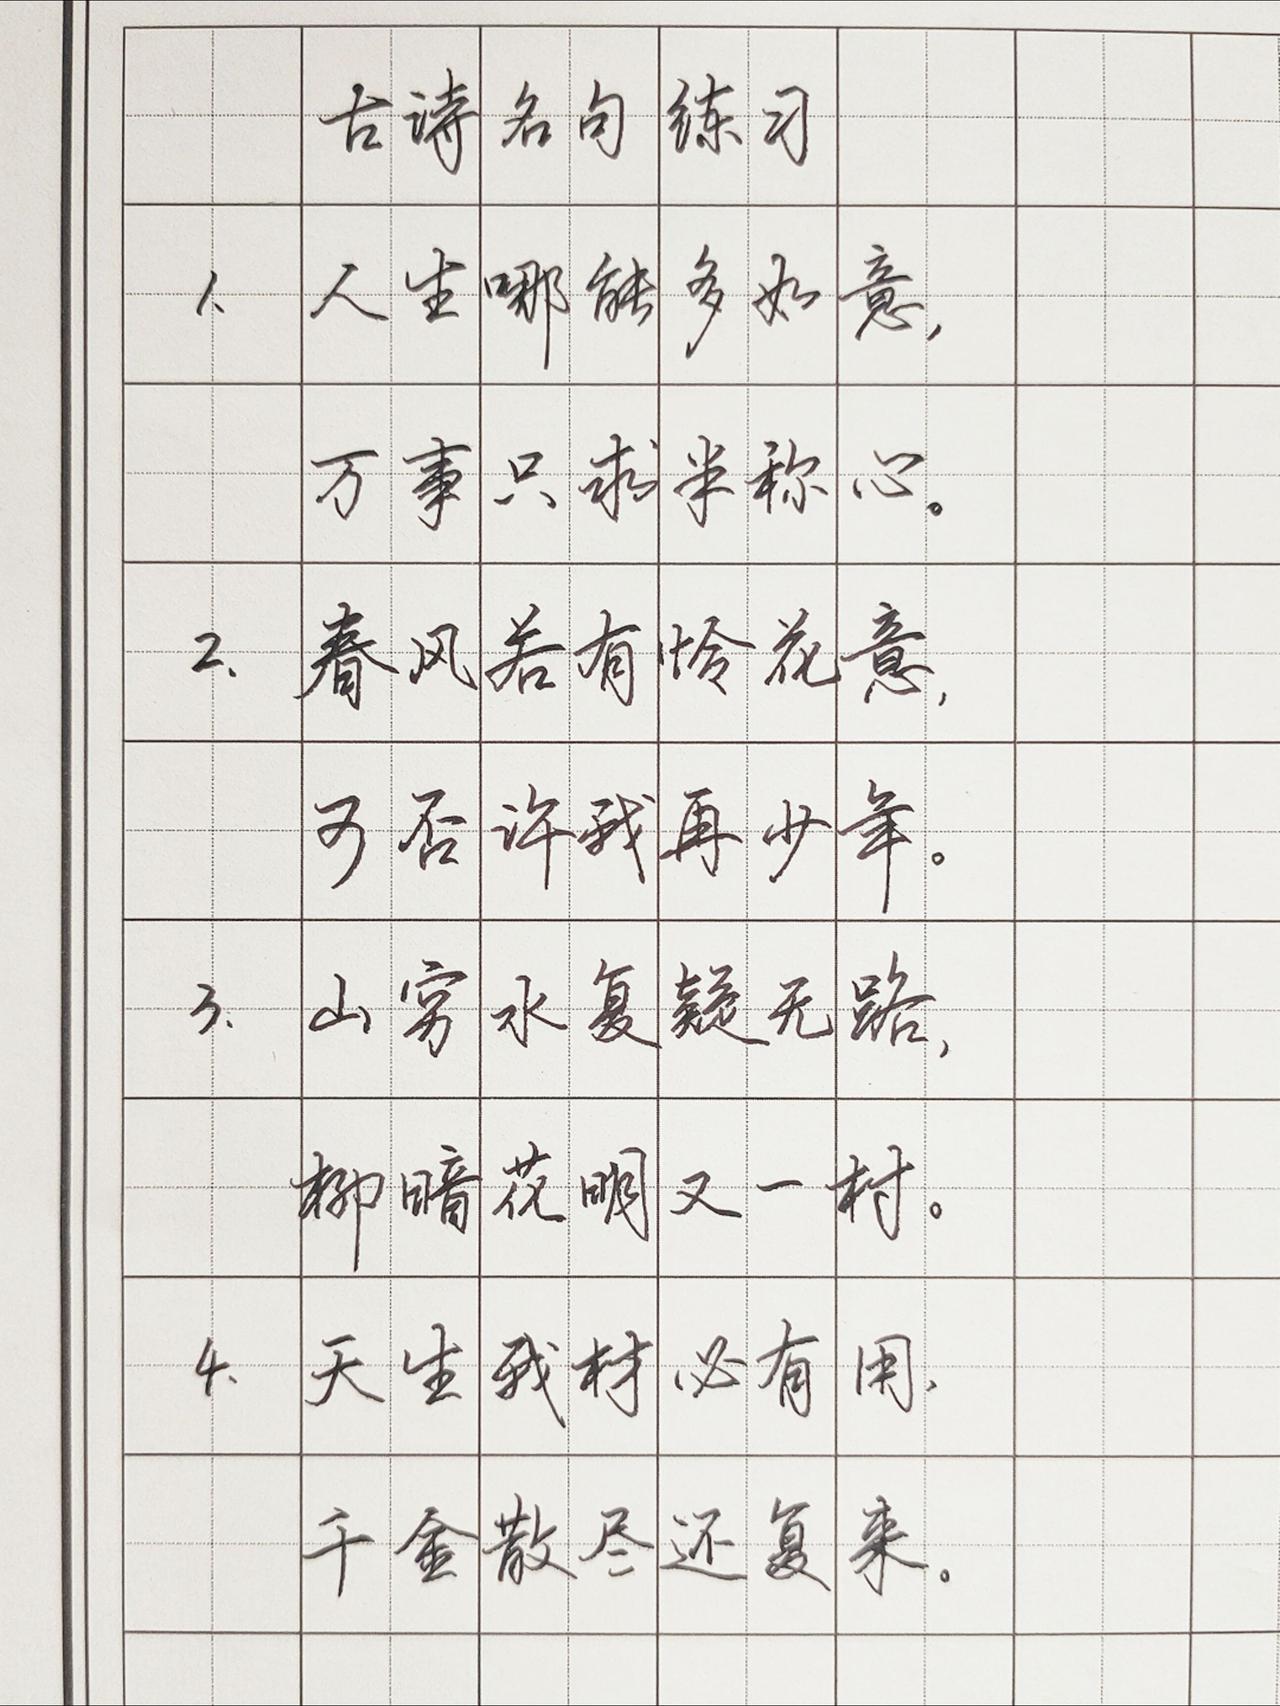 古诗名句练习
1、人生哪能多如意，
万事只求半称心。
2、春风若有怜花意，
可否许我再少年。
3、山穷水复疑无路，
柳暗花明又一村。
4、天生我材必有用，
千金散尽还复来。